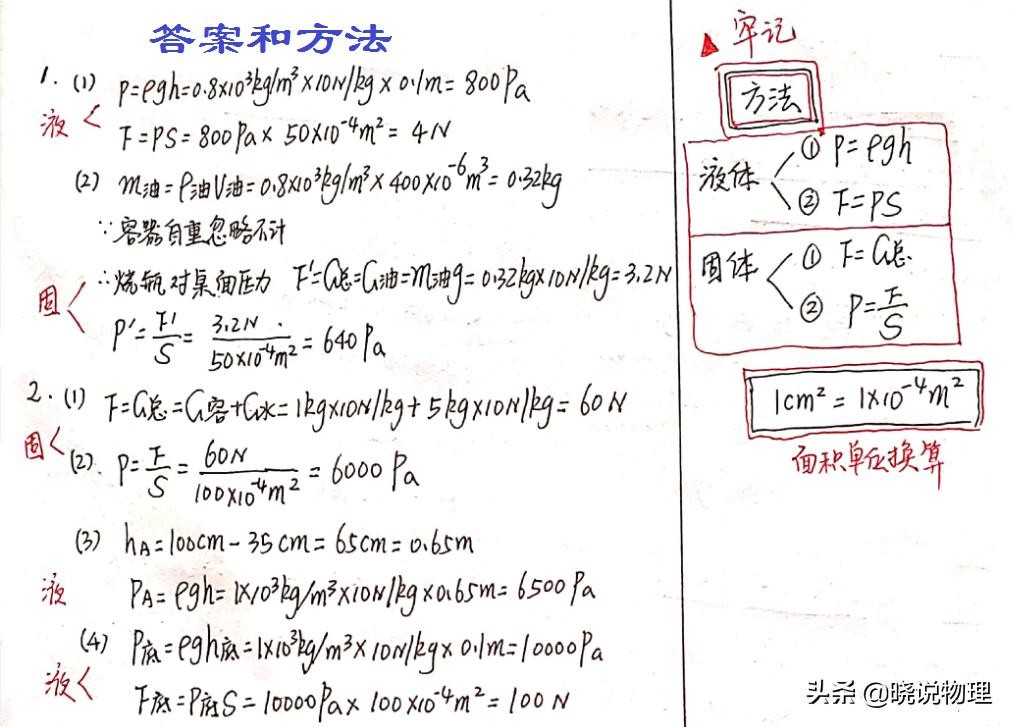 答案和方法
1. (1) P=ρgh=0.8×10³kg/m³×10N/kg×0.1m=800Pa
液
F=PS=800Pa×50×10⁻⁴m²=4N
(2) m油=ρ油V油=0.8×10³kg/m³×400×10⁻⁶m³=0.32kg
∵容器自重忽略不计
∴烧瓶对桌面压力 F'=G总=G油=m油g=0.32kg×10N/kg=3.2N
固
P'=F'/S=3.2N/50×10⁻⁴m²=640Pa
2. (1) F=G总=G容+G水=1kg×10N/kg+5kg×10N/kg=60N
固
(2). P=F/S=60N/100×10⁻⁴m²=6000Pa
(3) hA=100cm-35cm=65cm=0.65m
液 PA=ρgh=1×10³kg/m³×10N/kg×0.65m=6500Pa
(4) P底=ρgh底=1×10³kg/m³×10N/kg×0.1m=10000Pa
液
F底=P底S=10000Pa×100×10⁻⁴m²=100N
▲ 牢记
方法
液体
① P=ρgh
② F=PS
固体
① F=G总
② P=F/S
1cm²=1×10⁻⁴m²
面积单位换算
头条 @晓说物理